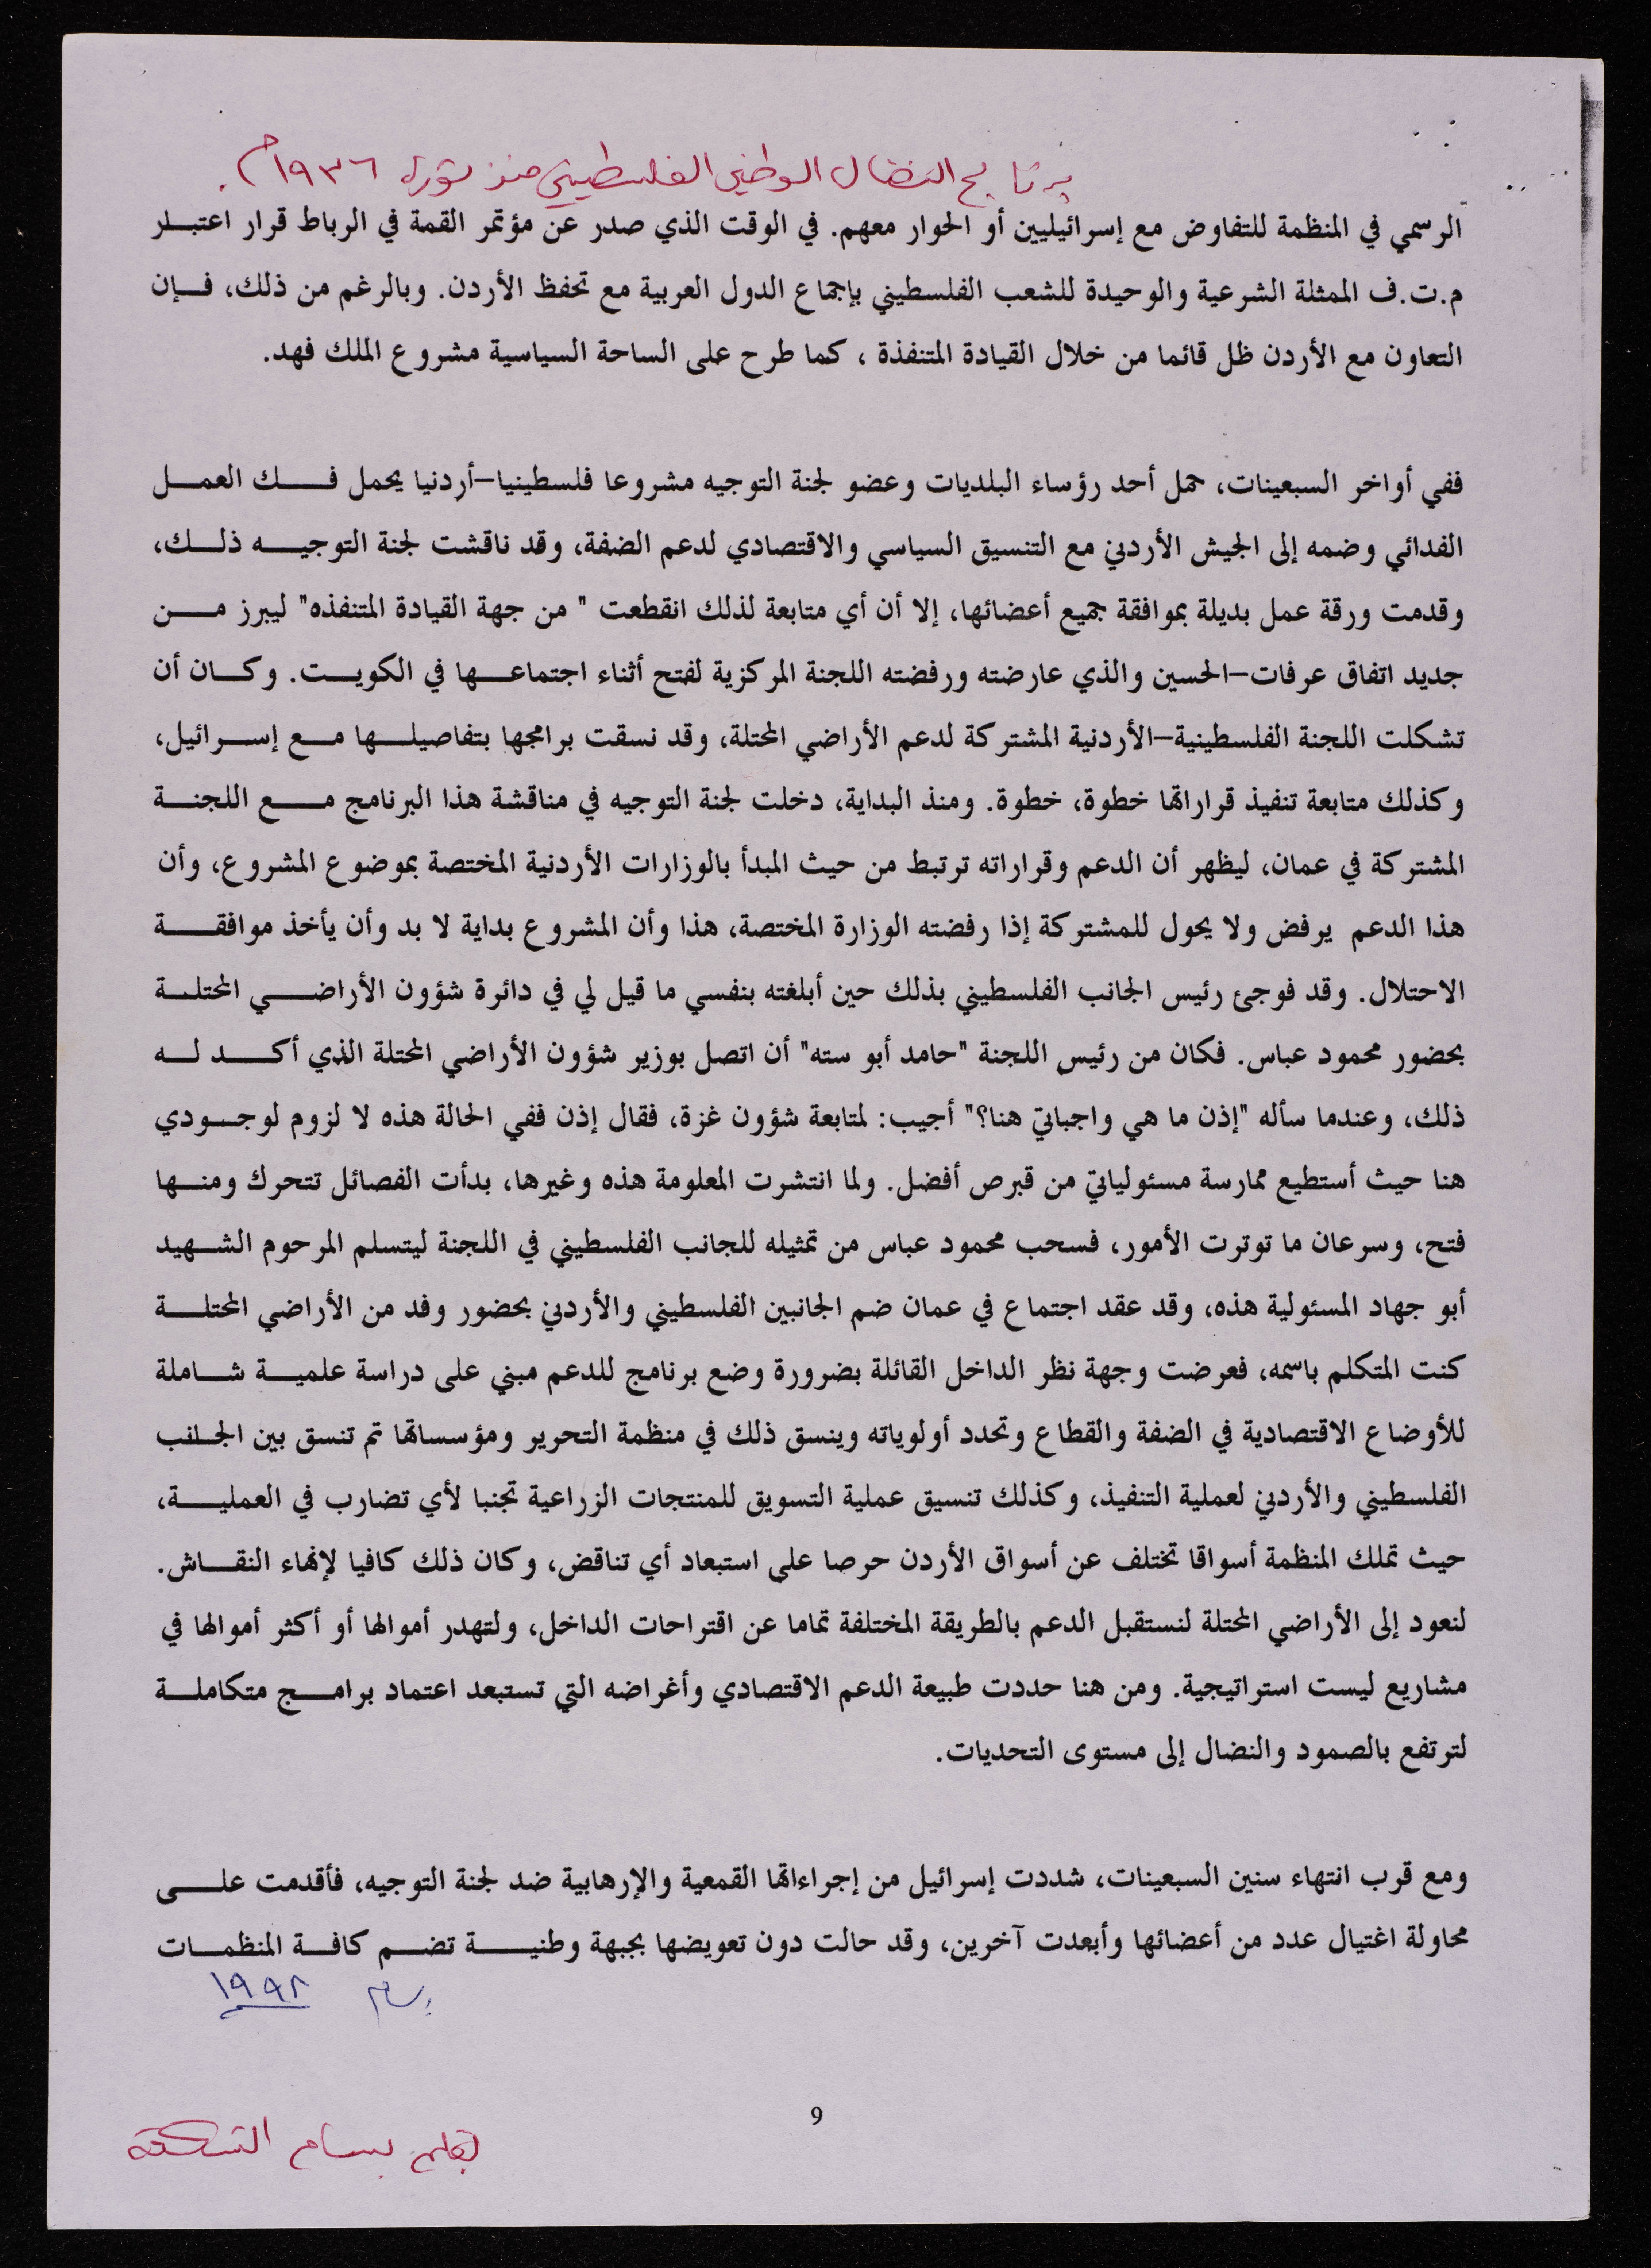 برنامج النضال الوطني الفلسطيني منذ ثورة ١٩٣٦م.
الرسمي في المنظمة للتفاوض مع إسرائيليين أو الحوار معهم. في الوقت الذي صدر عن مؤتمر القمة في الرباط قرار اعتبار
م.ت.ف الممثلة الشرعية والوحيدة للشعب الفلسطيني بإجماع الدول العربية مع تحفظ الأردن. وبالرغم من ذلك، فإن
التعاون مع الأردن ظل قائما من خلال القيادة المتنفذة ، كما طرح على الساحة السياسية مشروع الملك فهد.
ففي أواخر السبعينات، حمل أحد رؤساء البلديات وعضو لجنة التوجيه مشروعا فلسطينيا–أردنيا يحمل فك العمل
الفدائي وضمه إلى الجيش الأردني مع التنسيق السياسي والاقتصادي لدعم الضفة، وقد ناقشت لجنة التوجيه ذلك،
وقدمت ورقة عمل بديلة بموافقة جميع أعضائها، إلا أن أي متابعة لذلك انقطعت " من جهة القيادة المتنفذه" ليبرز من
جديد اتفاق عرفات–الحسين والذي عارضته ورفضته اللجنة المركزية لفتح أثناء اجتماعها في الكويت. وكان أن
تشكلت اللجنة الفلسطينية–الأردنية المشتركة لدعم الأراضي المحتلة، وقد نسقت برامجها بتفاصيلها مع إسرائيل،
وكذلك متابعة تنفيذ قراراتها خطوة، خطوة. ومنذ البداية، دخلت لجنة التوجيه في مناقشة هذا البرنامج مع اللجنة
المشتركة في عمان، ليظهر أن الدعم وقراراته ترتبط من حيث المبدأ بالوزارات الأردنية المختصة بموضوع المشروع، وأن
هذا الدعم يرفض ولا يحول للمشتركة إذا رفضته الوزارة المختصة، هذا وأن المشروع بداية لا بد وأن يأخذ موافقة
الاحتلال. وقد فوجئ رئيس الجانب الفلسطيني بذلك حين أبلغته بنفسي ما قيل لي في دائرة شؤون الأراضي المحتلة
بحضور محمود عباس. فكان من رئيس اللجنة "حامد أبو سته" أن اتصل بوزير شؤون الأراضي المحتلة الذي أكد له
ذلك، وعندما سأله "إذن ما هي واجباتي هنا؟" أجيب: لمتابعة شؤون غزة، فقال إذن ففي الحالة هذه لا لزوم لوجودي
هنا حيث أستطيع ممارسة مسئولياتي من قبرص أفضل. ولما انتشرت المعلومة هذه وغيرها، بدأت الفصائل تتحرك ومنها
فتح، وسرعان ما توترت الأمور، فسحب محمود عباس من تمثيله للجانب الفلسطيني في اللجنة ليتسلم المرحوم الشهيد
أبو جهاد المسئولية هذه، وقد عقد اجتماع في عمان ضم الجانبين الفلسطيني والأردني بحضور وفد من الأراضي المحتلة
كنت المتكلم باسمه، فعرضت وجهة نظر الداخل القائلة بضرورة وضع برنامج للدعم مبني على دراسة علمية شاملة
للأوضاع الاقتصادية في الضفة والقطاع وتحدد أولوياته وينسق ذلك في منظمة التحرير ومؤسساتها ثم تنسق بين الجانب
الفلسطيني والأردني لعملية التنفيذ، وكذلك تنسيق عملية التسويق للمنتجات الزراعية تجنبا لأي تضارب في العملية،
حيث تملك المنظمة أسواقا تختلف عن أسواق الأردن حرصا على استبعاد أي تناقض، وكان ذلك كافيا لإنهاء النقاش.
لنعود إلى الأراضي المحتلة لنستقبل الدعم بالطريقة المختلفة تماما عن اقتراحات الداخل، ولتهدر أموالها أو أكثر أموالها في
مشاريع ليست استراتيجية. ومن هنا حددت طبيعة الدعم الاقتصادي وأغراضه التي تستبعد اعتماد برامج متكاملة
لترتفع بالصمود والنضال إلى مستوى التحديات.
ومع قرب انتهاء سنين السبعينات، شددت إسرائيل من إجراءاتها القمعية والإرهابية ضد لجنة التوجيه، فأقدمت على
محاولة اغتيال عدد من أعضائها وأبعدت آخرين، وقد حالت دون تعويضها بجبهة وطنية تضم كافة المنظمات
بسام ١٩٩٨
9
بقلم بسام الشكعة